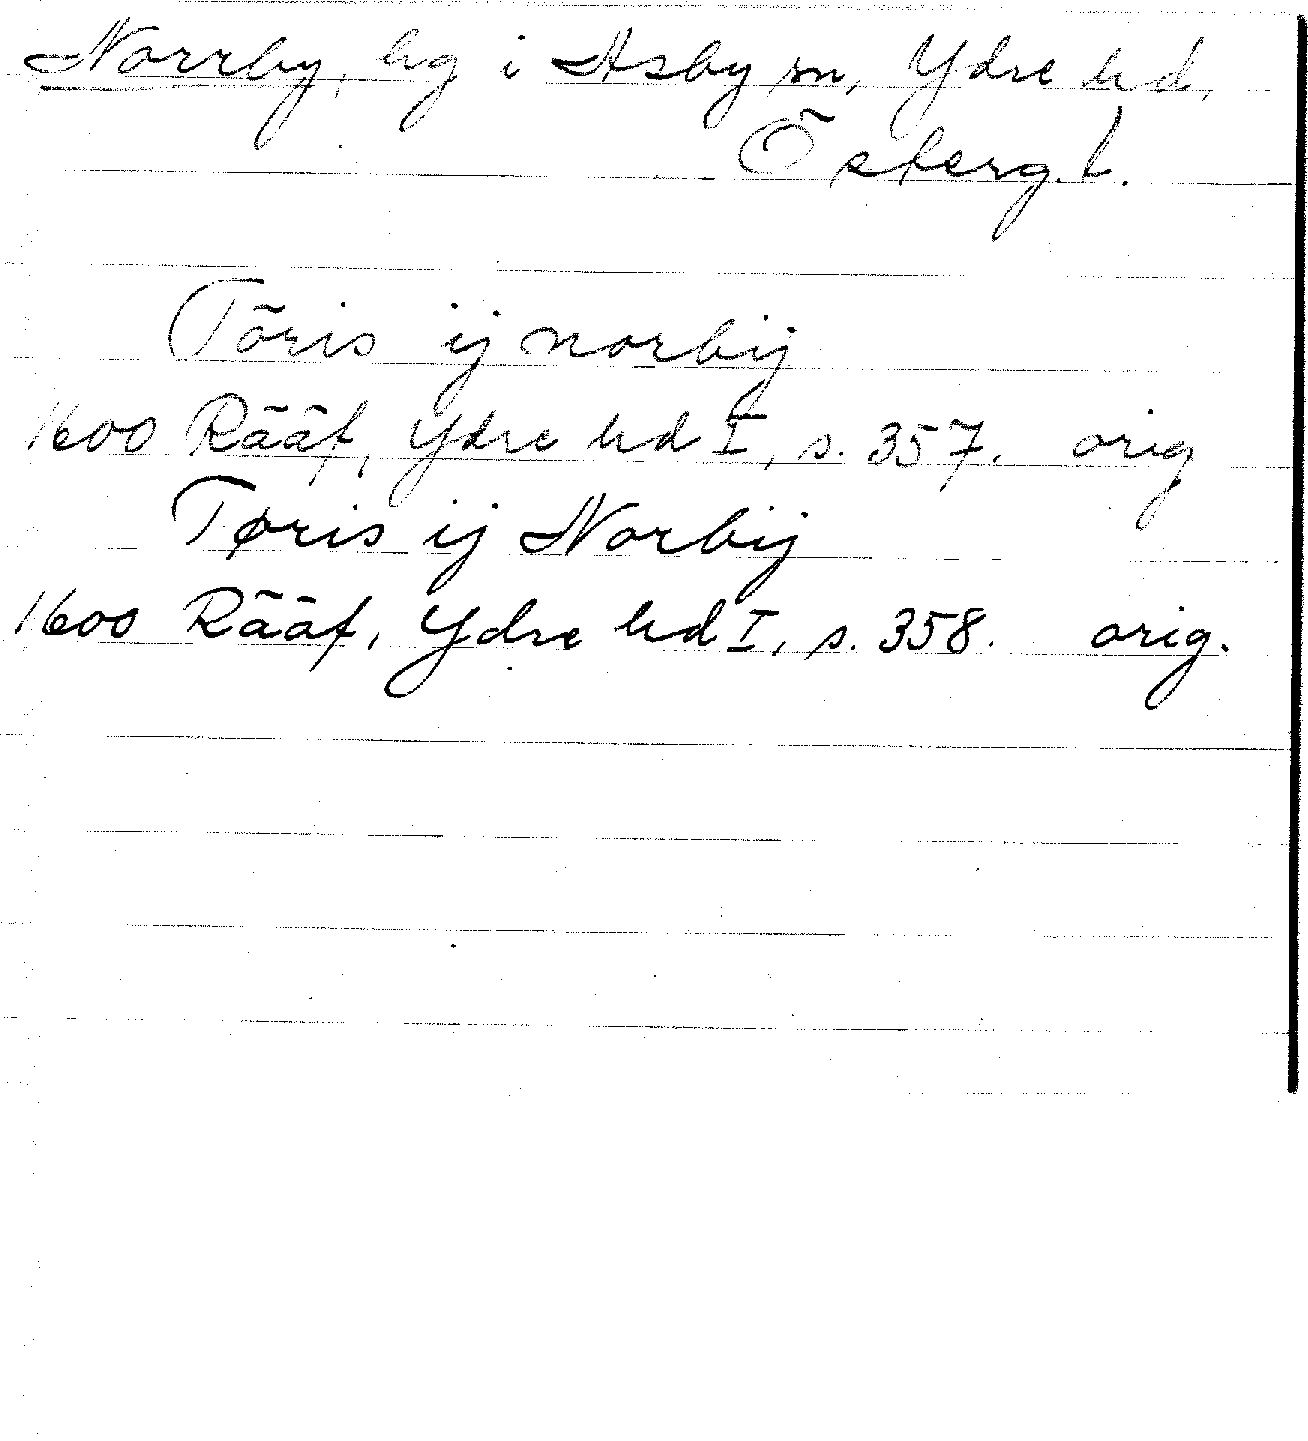 Norrby, hg i Asby sn, Ydre hd,
Österg. l.
Töris ij norbij
1600 Rääf, Ydre hd I, s. 357. orig
Tøris ij Norbij
1600 Rääf, Ydre hd I, s. 358. orig.